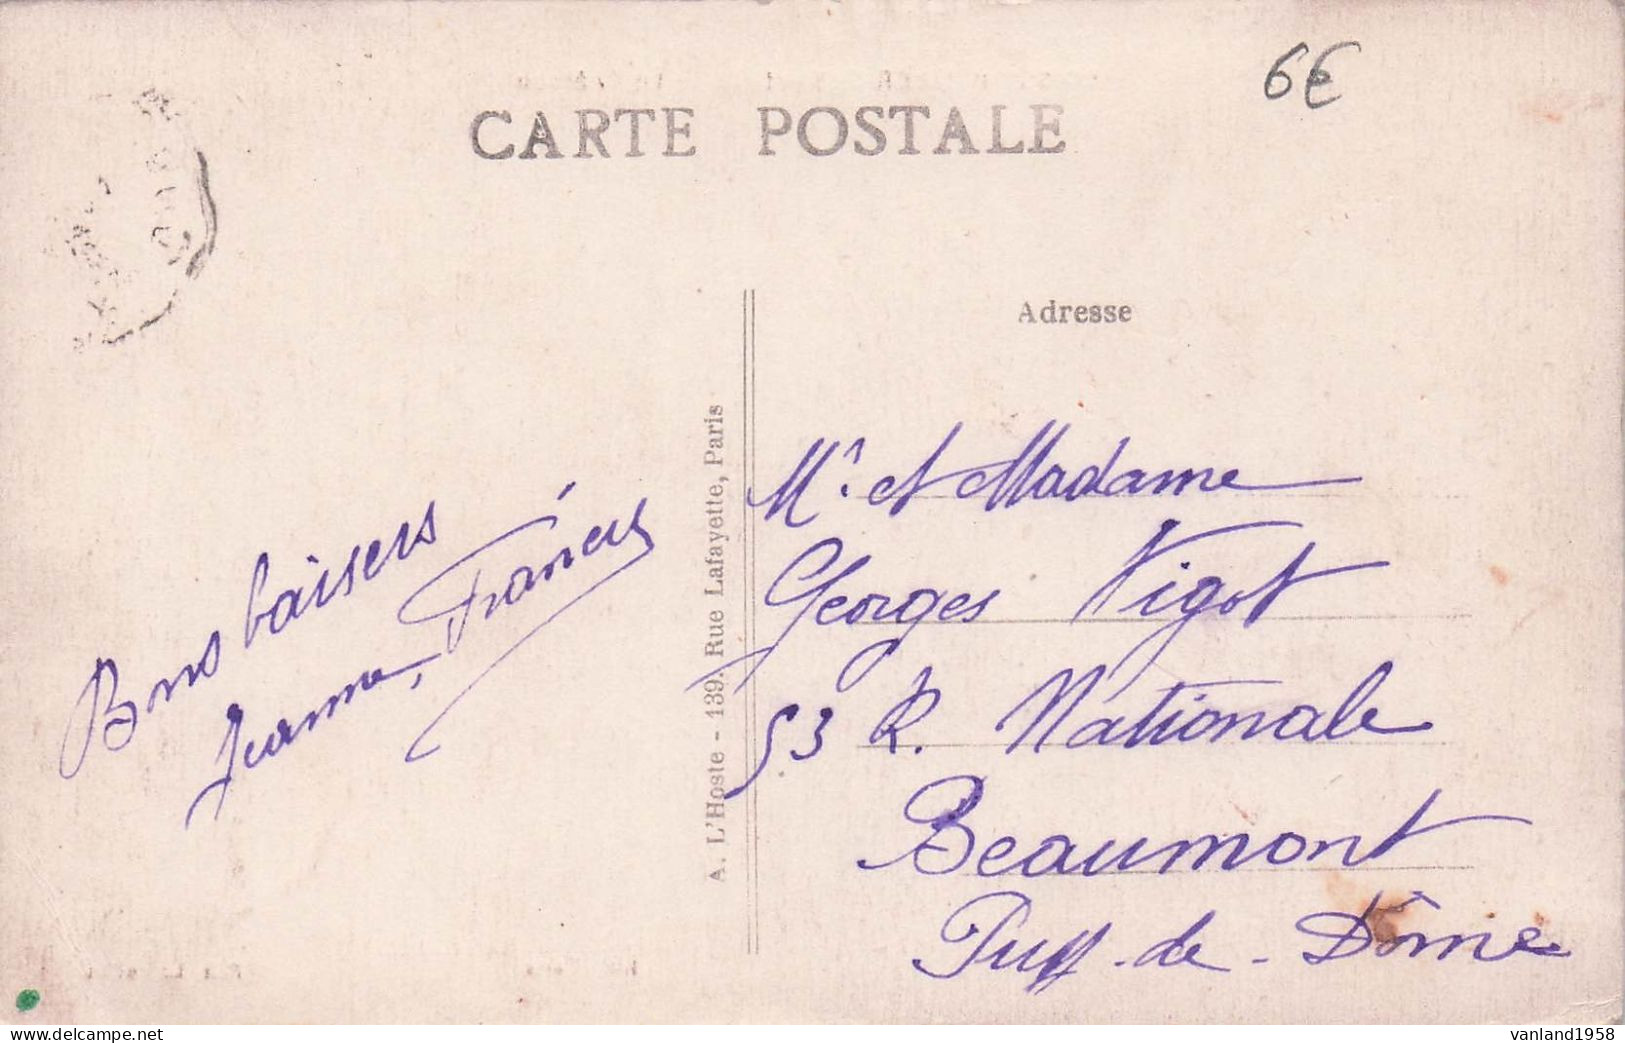 6€
CARTE POSTALE
Adresse
A. L'Hoste - 139. Rue Lafayette, Paris
Bons baisers
Jeanne, Francis
Mr. et Madame
Georges Vigot
53 R. Nationale
Beaumont
Puy-de-Dôme
delcampe.net
vanland1958